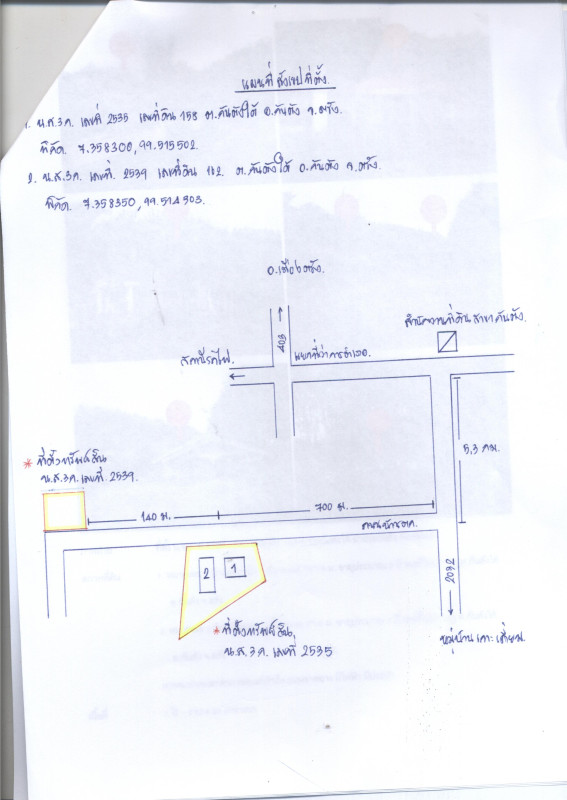 แผนที่ สังเขป ที่ตั้ง.
1. น.ส.3ก. เลขที่ 2535 เลขที่ดิน 158 ต.กันตังใต้ อ.กันตัง จ.ตรัง.
พิกัด. 7.358300,99.515502.
2. น.ส.3ก. เลขที่. 2539 เลขที่ดิน 162. ต.กันตังใต้ อ.กันตัง จ.ตรัง.
พิกัด. 7.358350,99.514303.
อ.เมืองตรัง.
403
สำนักงานที่ดิน สาขากันตัง.
สถานีรถไฟ.
แยกที่ว่าการอำเภอ.
5.3 กม.
* ที่ตั้งทรัพย์สิน
น.ส.3ก. เลขที่. 2539.
140 ม.
700 ม.
2
1
2032
* ที่ตั้งทรัพย์สิน,
น.ส.3ก. เลขที่ 2535
หมู่บ้าน เกาะเคี่ยม.